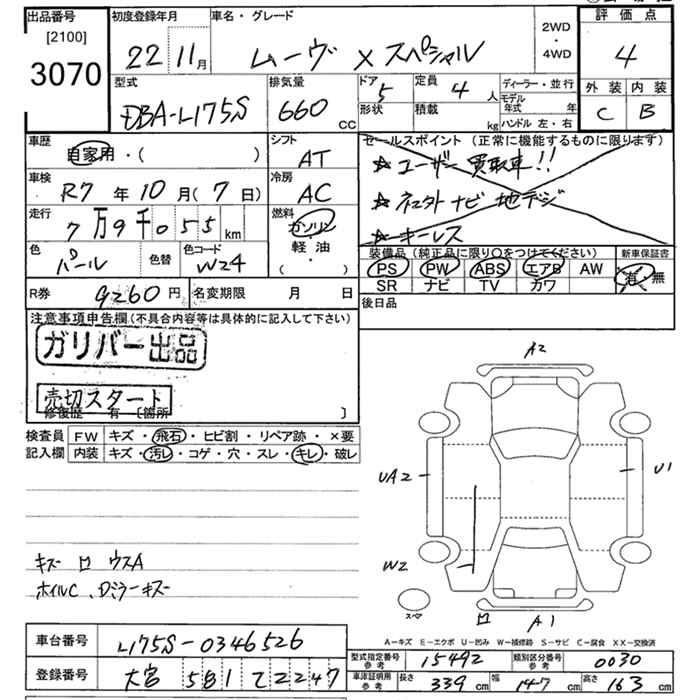 出品番号 初度登録年月 車名・グレード 2WD・4WD 評価点
[2100]
3070 22 11月 ムーヴ Xスペシャル 4
型式 排気量 ドア 5 定員 4 人 ディーラー・並行 外装 内装
DBA-L175S 660 CC 形状 積載 kg モデル年式 年 C B
ハンドル 左・右
車歴 シフト セールスポイント(正常に機能するものに限ります)
自家用・( ) AT ☆ユーザー買取車!!
車検 R7 年 10 月(7 日) 冷房 AC ☆ 地デジ
走行 7万9千055 km 燃料 ガソリン ☆キーレス
軽油・( )
色 パール 色替 色コード W24
装備品(純正品に限り○をつけてください) 新車保証書
PS PW ABS エアB AW 有・無
SR ナビ TV カワ
R券 9260円 名変期限 月 日 後日品
注意事項申告欄(不具合内容等は具体的に記入して下さい)
ガリバー出品
売切スタート
修復歴 有 〔箇所 〕
検査員 FW キズ・飛石・ヒビ割・リペア跡・×要
記入欄 内装 キズ・汚レ・コゲ・穴・スレ・キレ・破レ
A2
UA2 U1
W2
スペア
A1
キズ ロ ウスA
ホイルC、Dミラーキズ
A-キズ E-エクボ U-凹み W-補修跡 S-サビ C-腐食 XX-交換済
車台番号 L175S-0346526
型式指定番号参考 15492 類別区分番号参考 0030
登録番号 大宮 581 て 2247
車庫証明用参考 長さ 339 cm 幅 147 cm 高さ 163 cm